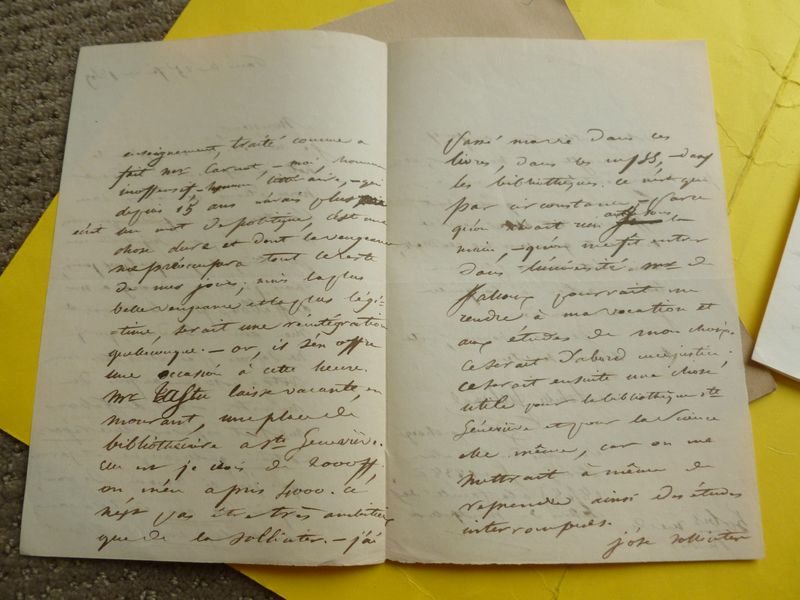 enseignement, traité comme a
fait Mr Carnot, – moi, homme
inoffensif, homme littéraire, – qui
depuis 15 ans n'avais plus
écrit un mot de politique, c'est une
chose dure et dont la vengeance
me préoccupera tout le reste
de mes jours; mais la plus
belle vengeance et la plus légi-
-time, serait une réintégration
quelconque. – or, il s'en offre
une occasion à cette heure.
Mr Tastu laisse vacante, en
mourant, une place de
bibliothécaire à Ste Geneviève.
elle est je crois de 2000 ff.
on m'en a pris 4000. ce
n'est pas être très ambitieux
que de la solliciter. – j'ai
passé ma vie dans les
livres, dans les mss, – dans
les bibliothèques. ce n'est que
par circonstance, – parce
qu'on n'avait rien autre sous la
main, – qu'on me fit entrer
dans l'université. Mr de
Falloux pourrait me
rendre à ma vocation et
aux études de mon choix.
ce serait d'abord une justice;
ce serait ensuite une chose
utile pour la bibliothèque Ste
Geneviève et pour la science
elle même, car on me
mettrait à même de
reprendre ainsi des études
interrompues.
j'ose solliciter